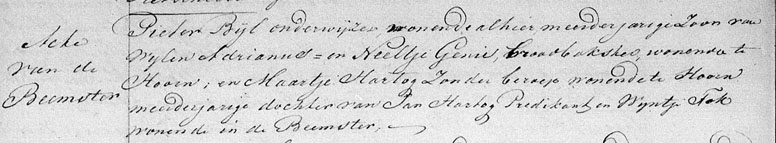 Acte
van de
Beemster
Pieter Bijl onderwijzer, wonende alhier meerderjarige Zoon van
Wijlen Adrianus = en Neeltje Genie, broodbakster, wonende te
Hoorn; en Maartje Hartog Zonder beroep wonende te Hoorn
meerderjarige dochter van Jan Hartog Predikant en Wijntje Tok
wonende in de Beemster,